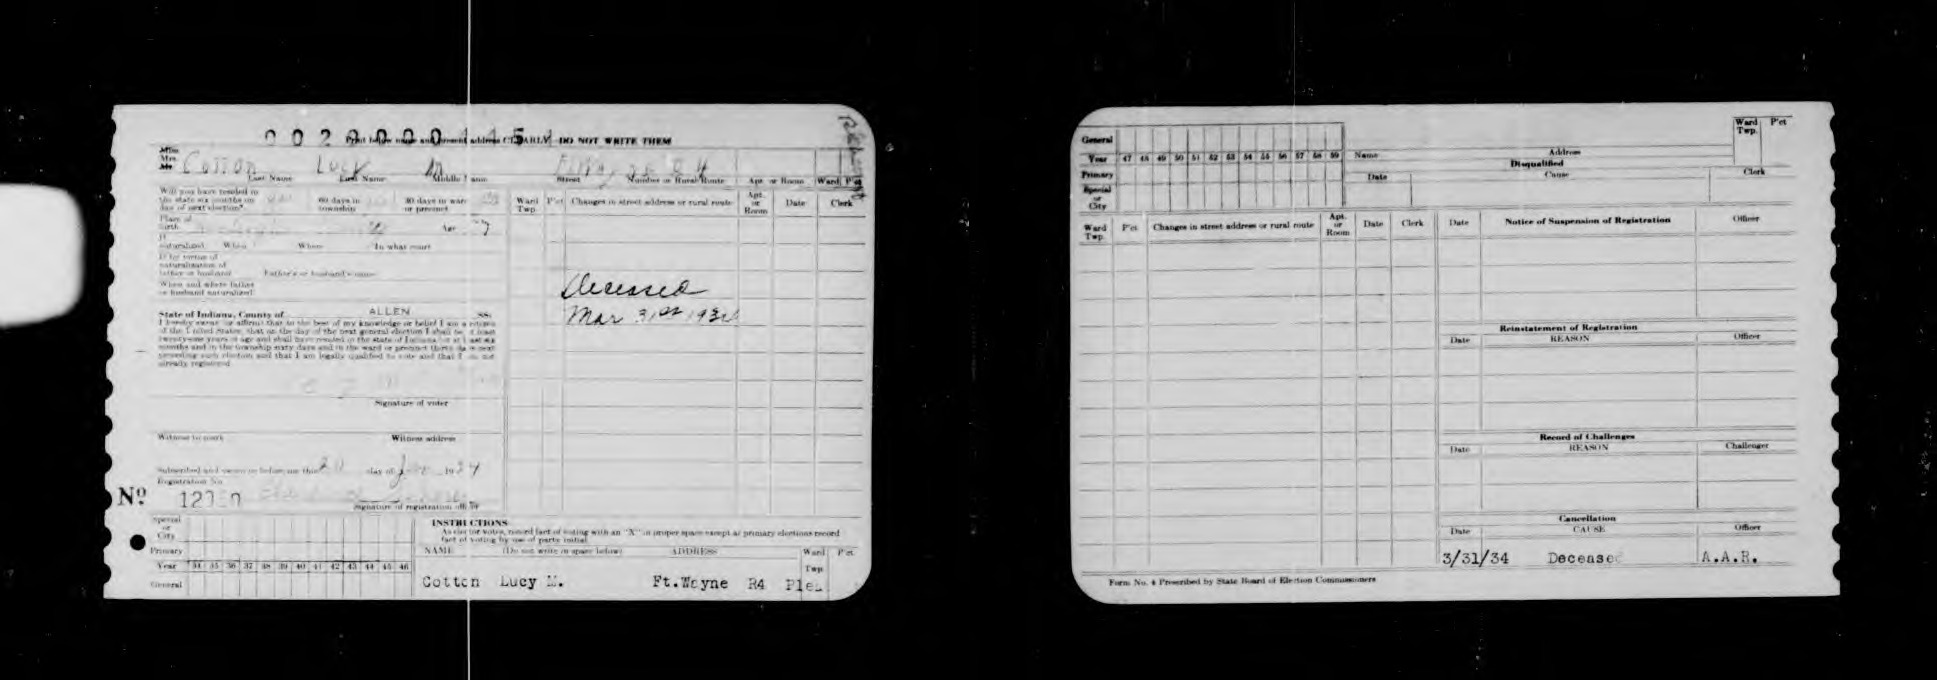 Print below name and present address CLEARLY. DO NOT WRITE THEM
Miss
Mrs.
Mr.
Cotton Lucy M
Last Name Middle Name Street Number or Rural Route Apt. or Room Ward P'ct
Will you have resided in
the state six months on
day of next election? 60 days in
township 30 days in ward
or precinct
Place of
birth Age
If
naturalized When Where In what court
If by virtue of
naturalization of
father or husband Father's or husband's name
When and where father
or husband naturalized
State of Indiana, County of ALLEN SS:
I hereby swear or affirm that to the best of my knowledge or belief I am a citizen
of the United States, that on the day of the next general election I shall be at least
twenty-one years of age and shall have resided in the state of Indiana for at least six
months and in the township sixty days and in the ward or precinct thirty days next
preceding such election and that I am legally qualified to vote and that I am not
already registered
Signature of voter
Witness to mark Witness address
Subscribed and sworn to before me this day of 1934
Registration No.
Nº
Signature of registration officer
Ward
Twp. P'ct Changes in street address or rural route Apt.
or
Room Date Clerk
Deceased
Mar 31st 1934
Special
or
City
Primary
Year 34 35 36 37 38 39 40 41 42 43 44 45 46
General
INSTRUCTIONS
As elector votes, record fact of voting with an "X" in proper space except at primary elections record
fact of voting by use of party initial
NAME (Do not write in space below) ADDRESS Ward
Twp. P'ct
Cotton Lucy M. Ft.Wayne R4
General
Year 47 48 49 50 51 52 53 54 55 56 57 58 59
Primary
Special
or
City
Name Address Ward
Twp. P'ct
Disqualified
Date Cause Clerk
Ward
Twp. P'ct Changes in street address or rural route Apt.
or
Room Date Clerk
Date Notice of Suspension of Registration Officer
Reinstatement of Registration
Date REASON Officer
Record of Challenges
Date REASON Challenger
Cancellation
Date CAUSE Officer
3/31/34 Deceased A.A.R.
Form No. 4 Prescribed by State Board of Election Commissioners